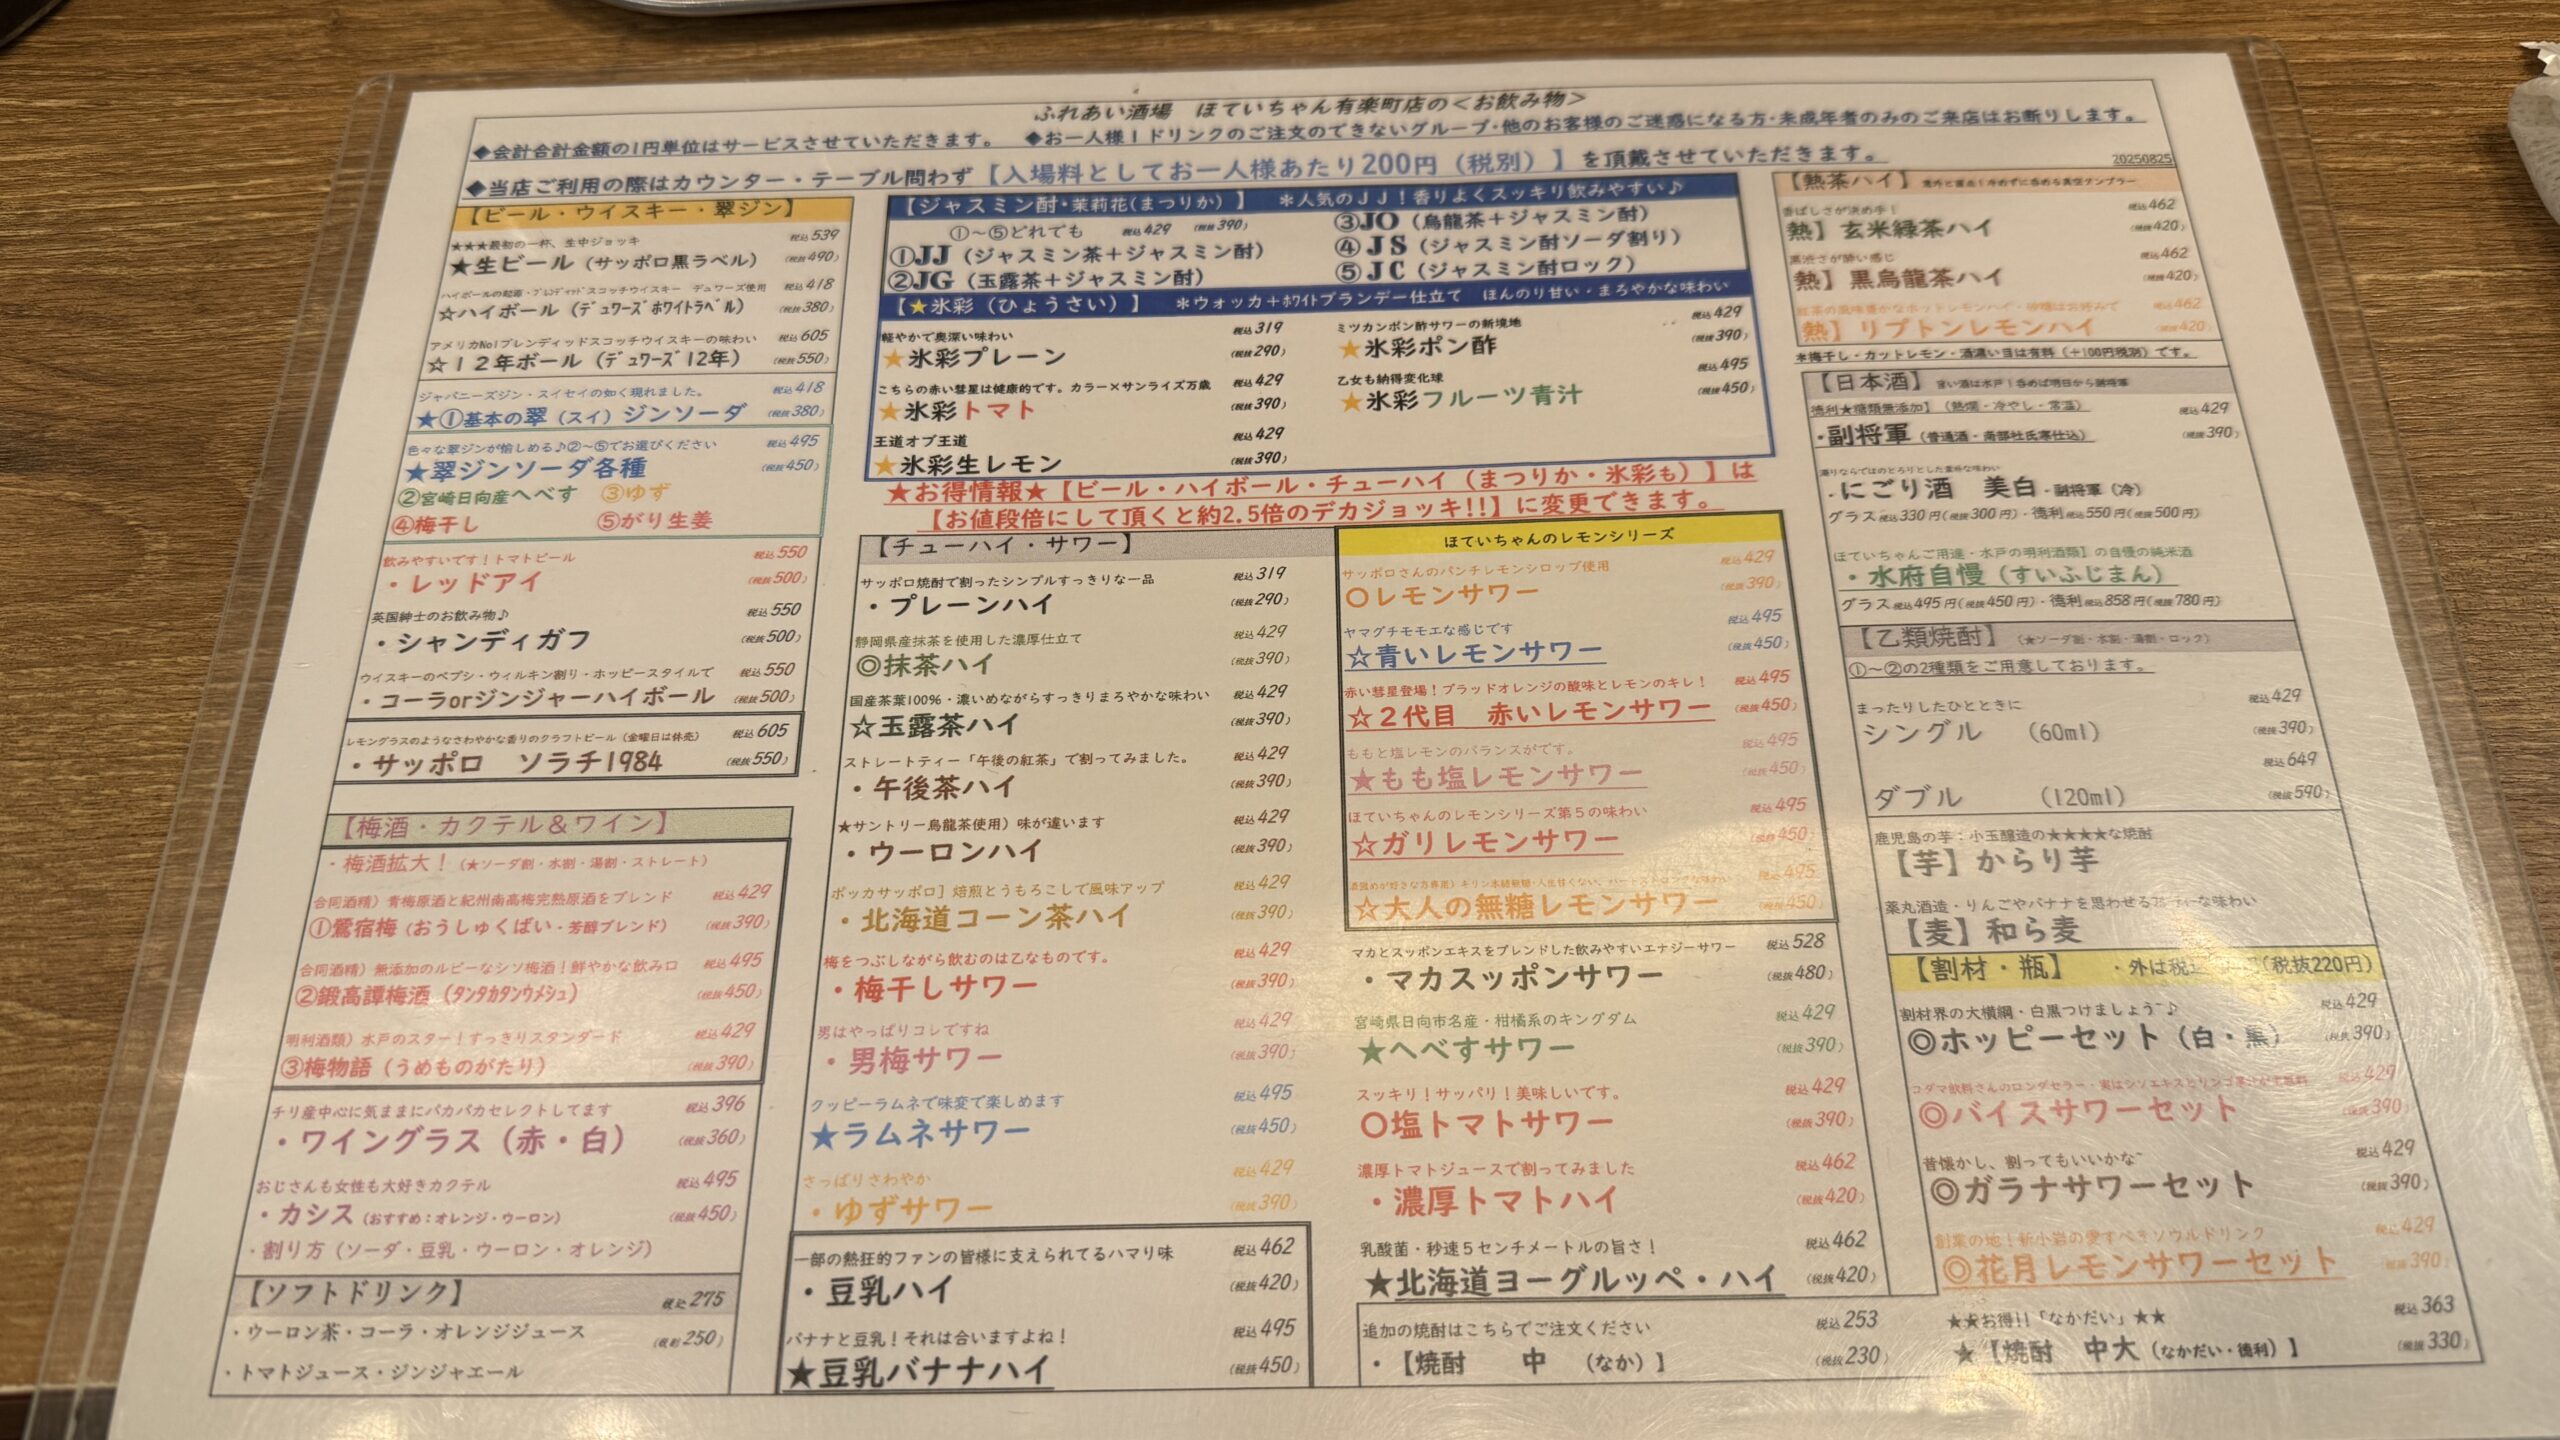 ふれあい酒場　ほていちゃん有楽町店の＜お飲み物＞
◆会計合計金額の1円単位はサービスさせていただきます。　◆お一人様1ドリンクのご注文のできないグループ・他のお客様のご迷惑になる方・未成年者のみのご来店はお断りします。
◆当店ご利用の際はカウンター・テーブル問わず【入場料としてお一人様あたり200円（税別）】を頂戴させていただきます。
20250825
【ビール・ウイスキー・翠ジン】
★★★最初の一杯、生中ジョッキ 税込539
★生ビール（サッポロ黒ラベル） （税抜490）
ハイボールの起源・ブレンデッドスコッチウイスキー　デュワーズ使用 税込418
☆ハイボール（デュワーズホワイトラベル） （税抜380）
アメリカNo1ブレンディッドスコッチウイスキーの味わい 税込605
☆12年ボール（デュワーズ12年） （税抜550）
ジャパニーズジン・スイセイの如く現れました。 税込418
★①基本の翠（スイ）ジンソーダ （税抜380）
色々な翠ジンが愉しめる♪②～⑤でお選びください 税込495
★翠ジンソーダ各種 （税抜450）
②宮崎日向産へべす　③ゆず
④梅干し　⑤がり生姜
飲みやすいです！トマトビール 税込550
・レッドアイ （税抜500）
英国紳士のお飲み物♪ 税込550
・シャンディガフ （税抜500）
ウイスキーのペプシ・ウィルキン割り・ホッピースタイルで 税込550
・コーラorジンジャーハイボール （税抜500）
レモングラスのようなさわやかな香りのクラフトビール（金曜日は休売） 税込605
・サッポロ　ソラチ1984 （税抜550）
【梅酒・カクテル＆ワイン】
・梅酒拡大！（★ソーダ割・水割・湯割・ストレート）
合同酒精）青梅原酒と紀州南高梅完熟原酒をブレンド 税込429
①鶯宿梅（おうしゅくばい・芳醇ブレンド） （税抜390）
合同酒精）無添加のルビーなシソ梅酒！鮮やかな飲み口 税込495
②鍛高譚梅酒（タンタカタンウメシュ） （税抜450）
明利酒類）水戸のスター！すっきりスタンダード 税込429
③梅物語（うめものがたり） （税抜390）
チリ産中心に気ままにパカパカセレクトしてます 税込396
・ワイングラス（赤・白） （税抜360）
おじさんも女性も大好きカクテル 税込495
・カシス（おすすめ：オレンジ・ウーロン） （税抜450）
・割り方（ソーダ・豆乳・ウーロン・オレンジ）
【ソフトドリンク】 税込275
・ウーロン茶・コーラ・オレンジジュース （税抜250）
・トマトジュース・ジンジャエール
【ジャスミン酎・茉莉花（まつりか）】　＊人気のJJ！香りよくスッキリ飲みやすい♪
①～⑤どれでも　税込429　（税抜390）
①JJ（ジャスミン茶＋ジャスミン酎）
②JG（玉露茶＋ジャスミン酎）
③JO（烏龍茶＋ジャスミン酎）
④JS（ジャスミン酎ソーダ割り）
⑤JC（ジャスミン酎ロック）
【★氷彩（ひょうさい）】　＊ウォッカ＋ホワイトブランデー仕立て　ほんのり甘い・まろやかな味わい
軽やかで奥深い味わい 税込319
★氷彩プレーン （税抜290）
こちらの赤い彗星は健康的です。カラー×サンライズ万歳 税込429
★氷彩トマト （税抜390）
王道オブ王道 税込429
★氷彩生レモン （税抜390）
ミツカンポン酢サワーの新境地 税込429
★氷彩ポン酢 （税抜390）
乙女も納得変化球 税込495
★氷彩フルーツ青汁 （税抜450）
★お得情報★【ビール・ハイボール・チューハイ（まつりか・氷彩も）】は
【お値段倍にして頂くと約2.5倍のデカジョッキ!!】に変更できます。
【チューハイ・サワー】
サッポロ焼酎で割ったシンプルすっきりな一品 税込319
・プレーンハイ （税抜290）
静岡県産抹茶を使用した濃厚仕立て 税込429
◎抹茶ハイ （税抜390）
国産茶葉100%・濃いめながらすっきりまろやかな味わい 税込429
☆玉露茶ハイ （税抜390）
ストレートティー「午後の紅茶」で割ってみました。 税込429
・午後茶ハイ （税抜390）
★サントリー烏龍茶使用）味が違います 税込429
・ウーロンハイ （税抜390）
ポッカサッポロ］焙煎とうもろこしで風味アップ 税込429
・北海道コーン茶ハイ （税抜390）
梅をつぶしながら飲むのは乙なものです。 税込429
・梅干しサワー （税抜390）
男はやっぱりコレですね 税込429
・男梅サワー （税抜390）
クッピーラムネで味変で楽しめます 税込495
★ラムネサワー （税抜450）
さっぱりさわやか 税込429
・ゆずサワー （税抜390）
一部の熱狂的ファンの皆様に支えられてるハマり味 税込462
・豆乳ハイ （税抜420）
バナナと豆乳！それは合いますよね！ 税込495
★豆乳バナナハイ （税抜450）
ほていちゃんのレモンシリーズ
サッポロさんのパンチレモンシロップ使用 税込429
〇レモンサワー （税抜390）
ヤマグチモモエな感じです 税込495
☆青いレモンサワー （税抜450）
赤い彗星登場！ブラッドオレンジの酸味とレモンのキレ！ 税込495
☆2代目　赤いレモンサワー （税抜450）
ももと塩レモンのバランスがです。 税込495
★もも塩レモンサワー （税抜450）
ほていちゃんのレモンシリーズ第5の味わい 税込495
☆ガリレモンサワー （税抜450）
税込495
☆大人の無糖レモンサワー （税抜450）
マカとスッポンエキスをブレンドした飲みやすいエナジーサワー 税込528
・マカスッポンサワー （税抜480）
宮崎県日向市名産・柑橘系のキングダム 税込429
★へべすサワー （税抜390）
スッキリ！サッパリ！美味しいです。 税込429
〇塩トマトサワー （税抜390）
濃厚トマトジュースで割ってみました 税込462
・濃厚トマトハイ （税抜420）
乳酸菌・秒速5センチメートルの旨さ！ 税込462
★北海道ヨーグルッペ・ハイ （税抜420）
追加の焼酎はこちらでご注文ください 税込253
・【焼酎　中　（なか）】 （税抜230）
【熱茶ハイ】
香ばしさが決め手！ 税込462
熱】玄米緑茶ハイ （税抜420）
黒渋さが酔い感じ 税込462
熱】黒烏龍茶ハイ （税抜420）
税込462
熱】リプトンレモンハイ （税抜420）
＊梅干し・カットレモン・酒濃い目は有料（＋100円税別）です。
【日本酒】 旨い酒は水戸！呑めば明日から副将軍
徳利★糖類無添加】（熱燗・冷やし・常温） 税込429
・副将軍（普通酒・南部杜氏寒仕込） （税抜390）
濁りならではのとろりとした素朴な味わい
・にごり酒　美白・副将軍（冷）
グラス税込330円（税抜300円）・徳利税込550円（税抜500円）
ほていちゃんご用達・水戸の明利酒類】の自慢の純米酒
・水府自慢（すいふじまん）
グラス税込495円（税抜450円）・徳利税込858円（税抜780円）
【乙類焼酎】（★ソーダ割・水割・湯割・ロック）
①～②の2種類をご用意しております。
まったりしたひとときに 税込429
シングル　（60ml） （税抜390）
税込649
ダブル　（120ml） （税抜590）
鹿児島の芋：小玉醸造の★★★★な焼酎
【芋】からり芋
薬丸酒造・りんごやバナナを思わせる な味わい
【麦】和ら麦
【割材・瓶】　・外は税込 （税抜220円）
割材界の大横綱・白黒つけましょう～♪ 税込429
◎ホッピーセット（白・黒） （税抜390）
税込429
◎バイスサワーセット （税抜390）
昔懐かし、割ってもいいかな～ 税込429
◎ガラナサワーセット （税抜390）
創業の地！新小岩の愛すべきソウルドリンク 税込429
◎花月レモンサワーセット （税抜390）
★★お得!!「なかだい」★★ 税込363
★【焼酎　中大（なかだい・徳利）】 （税抜330）